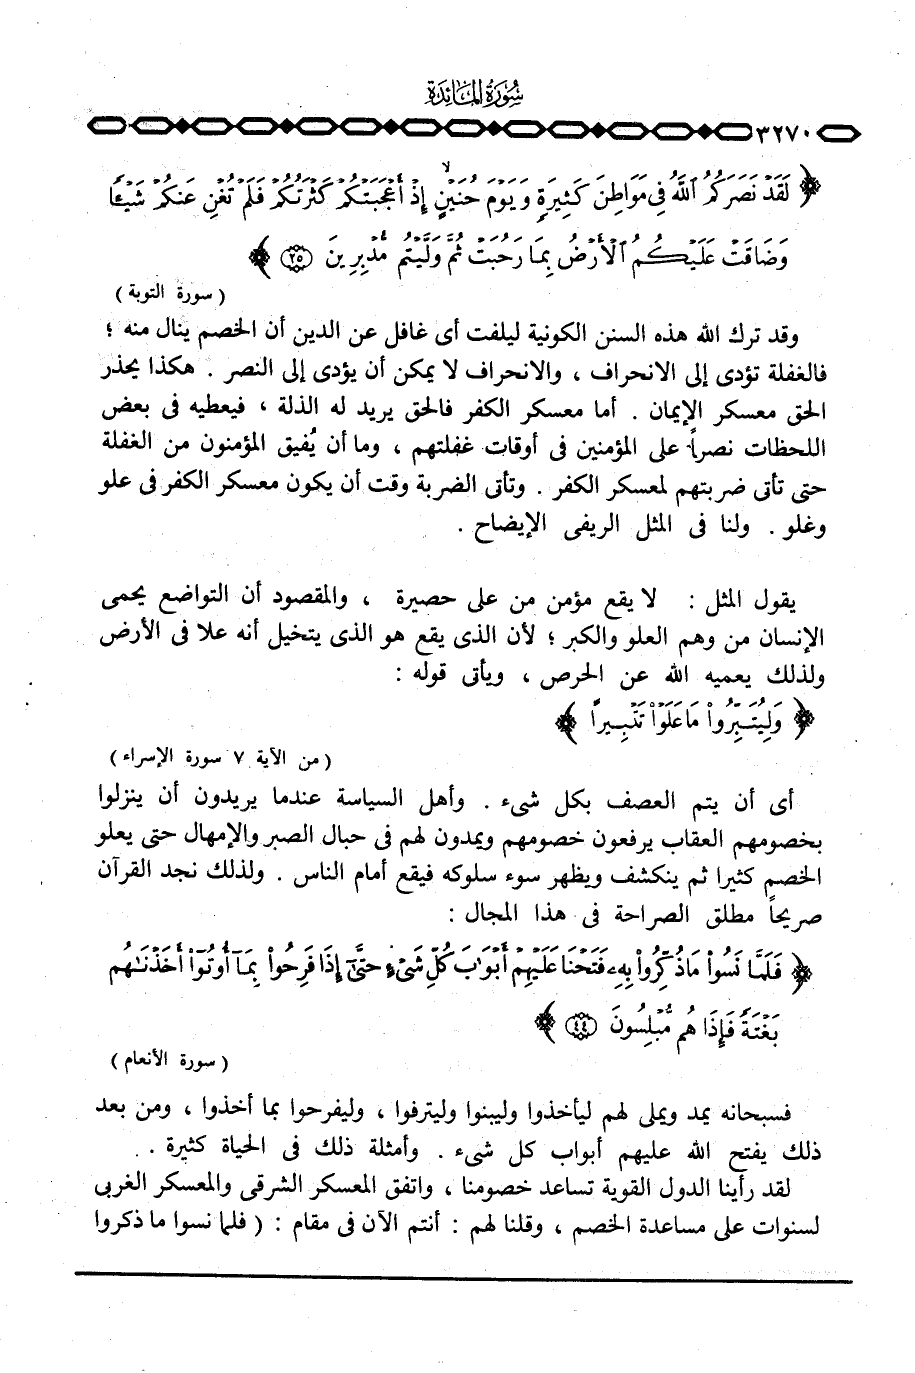 سُورَةُ المَائِدَةِ
٣٢٧٠
﴿ لَقَدْ نَصَرَكُمُ ٱللَّهُ فِى مَوَاطِنَ كَثِيرَةٍ وَيَوْمَ حُنَيْنٍ إِذْ أَعْجَبَتْكُمْ كَثْرَتُكُمْ فَلَمْ تُغْنِ عَنكُمْ شَيْئًا
وَضَاقَتْ عَلَيْكُمُ ٱلْأَرْضُ بِمَا رَحُبَتْ ثُمَّ وَلَّيْتُم مُّدْبِرِينَ ٢٥ ﴾
( سورة التوبة )
وقد ترك الله هذه السنن الكونية ليلفت أى غافل عن الدين أن الخصم ينال منه ؛
فالغفلة تؤدى إلى الانحراف ، والانحراف لا يمكن أن يؤدى إلى النصر . هكذا يحذر
الحق معسكر الإيمان . أما معسكر الكفر فالحق يريد له الذلة ، فيعطيه فى بعض
اللحظات نصراً على المؤمنين فى أوقات غفلتهم ، وما أن يُفيق المؤمنون من الغفلة
حتى تأتى ضربتهم لمعسكر الكفر . وتأتى الضربة وقت أن يكون معسكر الكفر فى علو
وغلو . ولنا فى المثل الريفى الإيضاح .
يقول المثل : لا يقع مؤمن من على حصيرة ، والمقصود أن التواضع يحمى
الإنسان من وهم العلو والكبر ؛ لأن الذى يقع هو الذى يتخيل أنه علا فى الأرض
ولذلك يعميه الله عن الحرص ، ويأتى قوله :
﴿ وَلِيُتَبِّرُوا۟ مَا عَلَوْا۟ تَتْبِيرًا ﴾
( من الآية ٧ سورة الإسراء )
أى أن يتم العصف بكل شىء . وأهل السياسة عندما يريدون أن ينزلوا
بخصومهم العقاب يرفعون خصومهم ويمدون لهم فى حبال الصبر والإمهال حتى يعلو
الخصم كثيرا ثم ينكشف ويظهر سوء سلوكه فيقع أمام الناس . ولذلك نجد القرآن
صريحاً مطلق الصراحة فى هذا المجال :
﴿ فَلَمَّا نَسُوا۟ مَا ذُكِّرُوا۟ بِهِۦ فَتَحْنَا عَلَيْهِمْ أَبْوَٰبَ كُلِّ شَىْءٍ حَتَّىٰٓ إِذَا فَرِحُوا۟ بِمَآ أُوتُوٓا۟ أَخَذْنَٰهُم
بَغْتَةً فَإِذَا هُم مُّبْلِسُونَ ٤٤ ﴾
( سورة الأنعام )
فسبحانه يمد ويملى لهم ليأخذوا وليبنوا وليترفوا ، وليفرحوا بما أخذوا ، ومن بعد
ذلك يفتح الله عليهم أبواب كل شىء . وأمثلة ذلك فى الحياة كثيرة .
لقد رأينا الدول القوية تساعد خصومنا ، واتفق المعسكر الشرقى والمعسكر الغربى
لسنوات على مساعدة الخصم ، وقلنا لهم : أنتم الآن فى مقام : ( فلما نسوا ما ذكروا